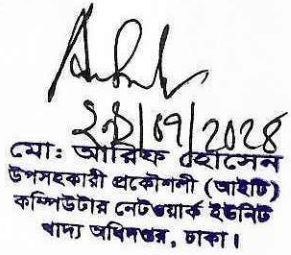 /০৭/২০২৪
মো: আরিফ হোসেন
উপসহকারী প্রকৌশলী (আইটি)
কম্পিউটার নেটওয়ার্ক ইউনিট
খাদ্য অধিদপ্তর, ঢাকা।